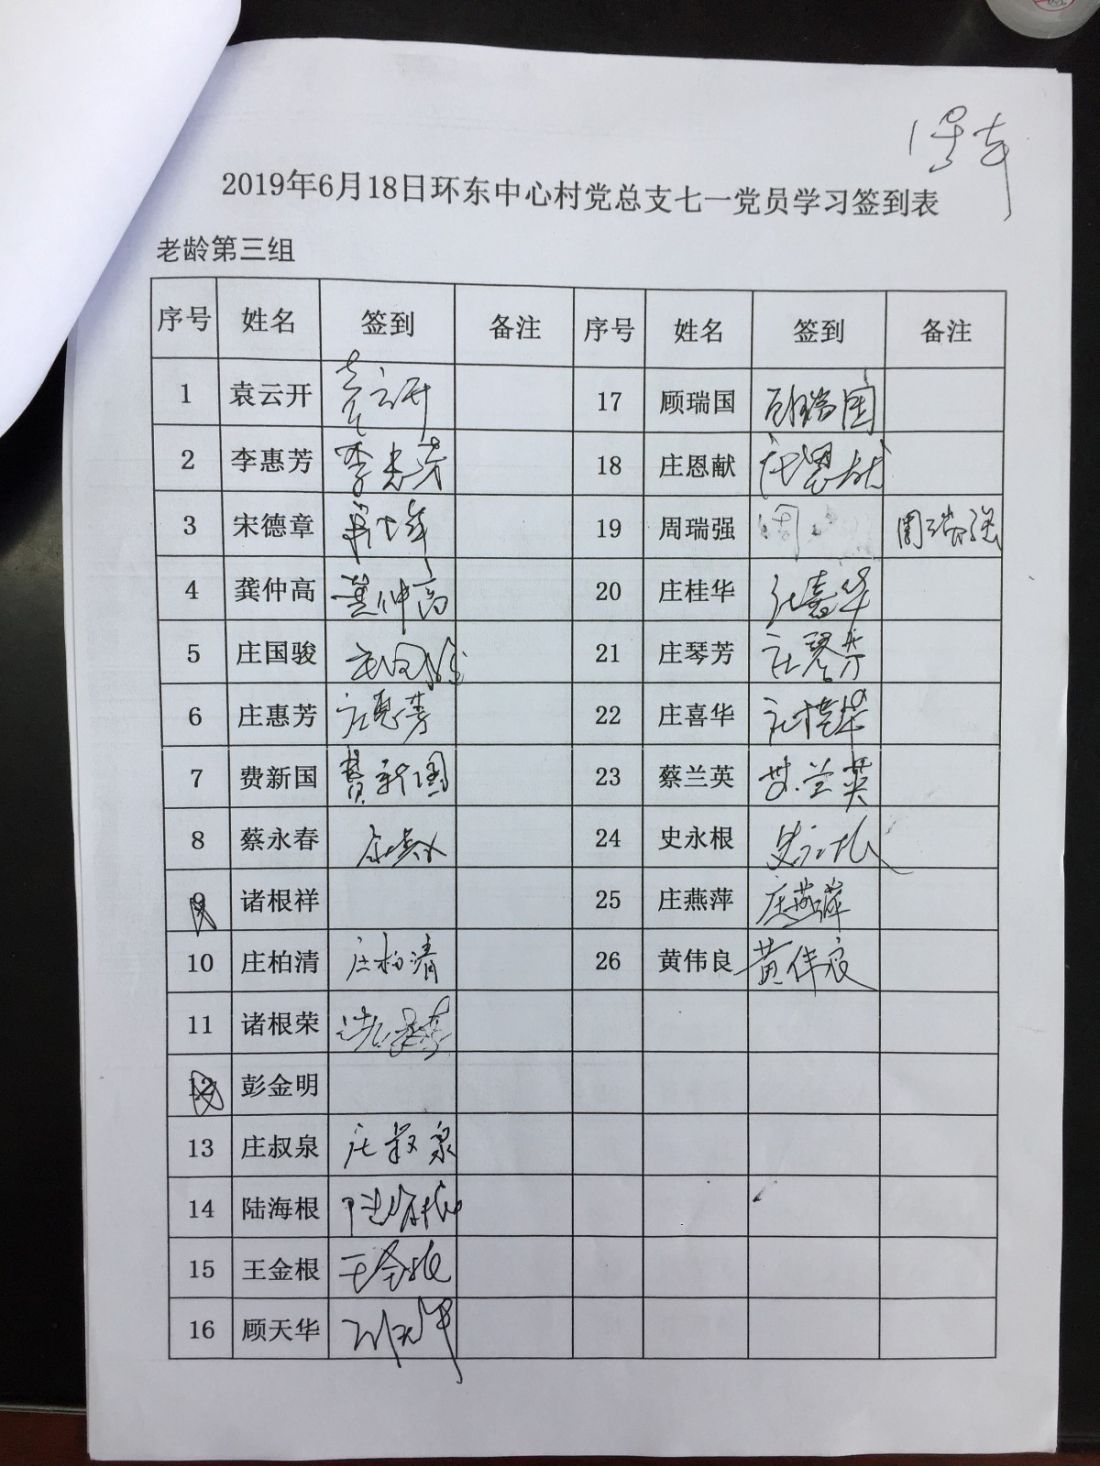 2019年6月18日环东中心村党总支七一党员学习签到表
老龄第三组
序号 姓名 签到 备注 序号 姓名 签到 备注
1 袁云开 袁云开 17 顾瑞国 顾瑞国
2 李惠芳 李惠芳 18 庄恩献 庄恩献
3 宋德章 19 周瑞强 周 周瑞强
4 龚仲高 龚仲高 20 庄桂华 庄喜华
5 庄国骏 庄国骏 21 庄琴芳 庄琴芳
6 庄惠芳 庄惠芳 22 庄喜华 庄桂华
7 费新国 费新国 23 蔡兰英 蔡兰英
8 蔡永春 24 史永根 史永根
9 诸根祥 25 庄燕萍 庄燕萍
10 庄柏清 庄柏清 26 黄伟良 黄伟良
11 诸根荣 诸根荣
12 彭金明
13 庄叔泉 庄叔泉
14 陆海根 陆海根
15 王金根 王金根
16 顾天华 顾天华